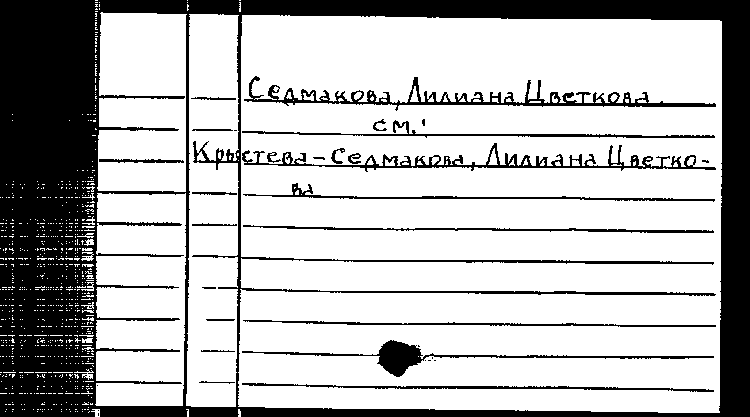 Седмакова, Лилиана Цветкова.
см.:
Крыстева-Седмакова, Лилиана Цветко-
ва